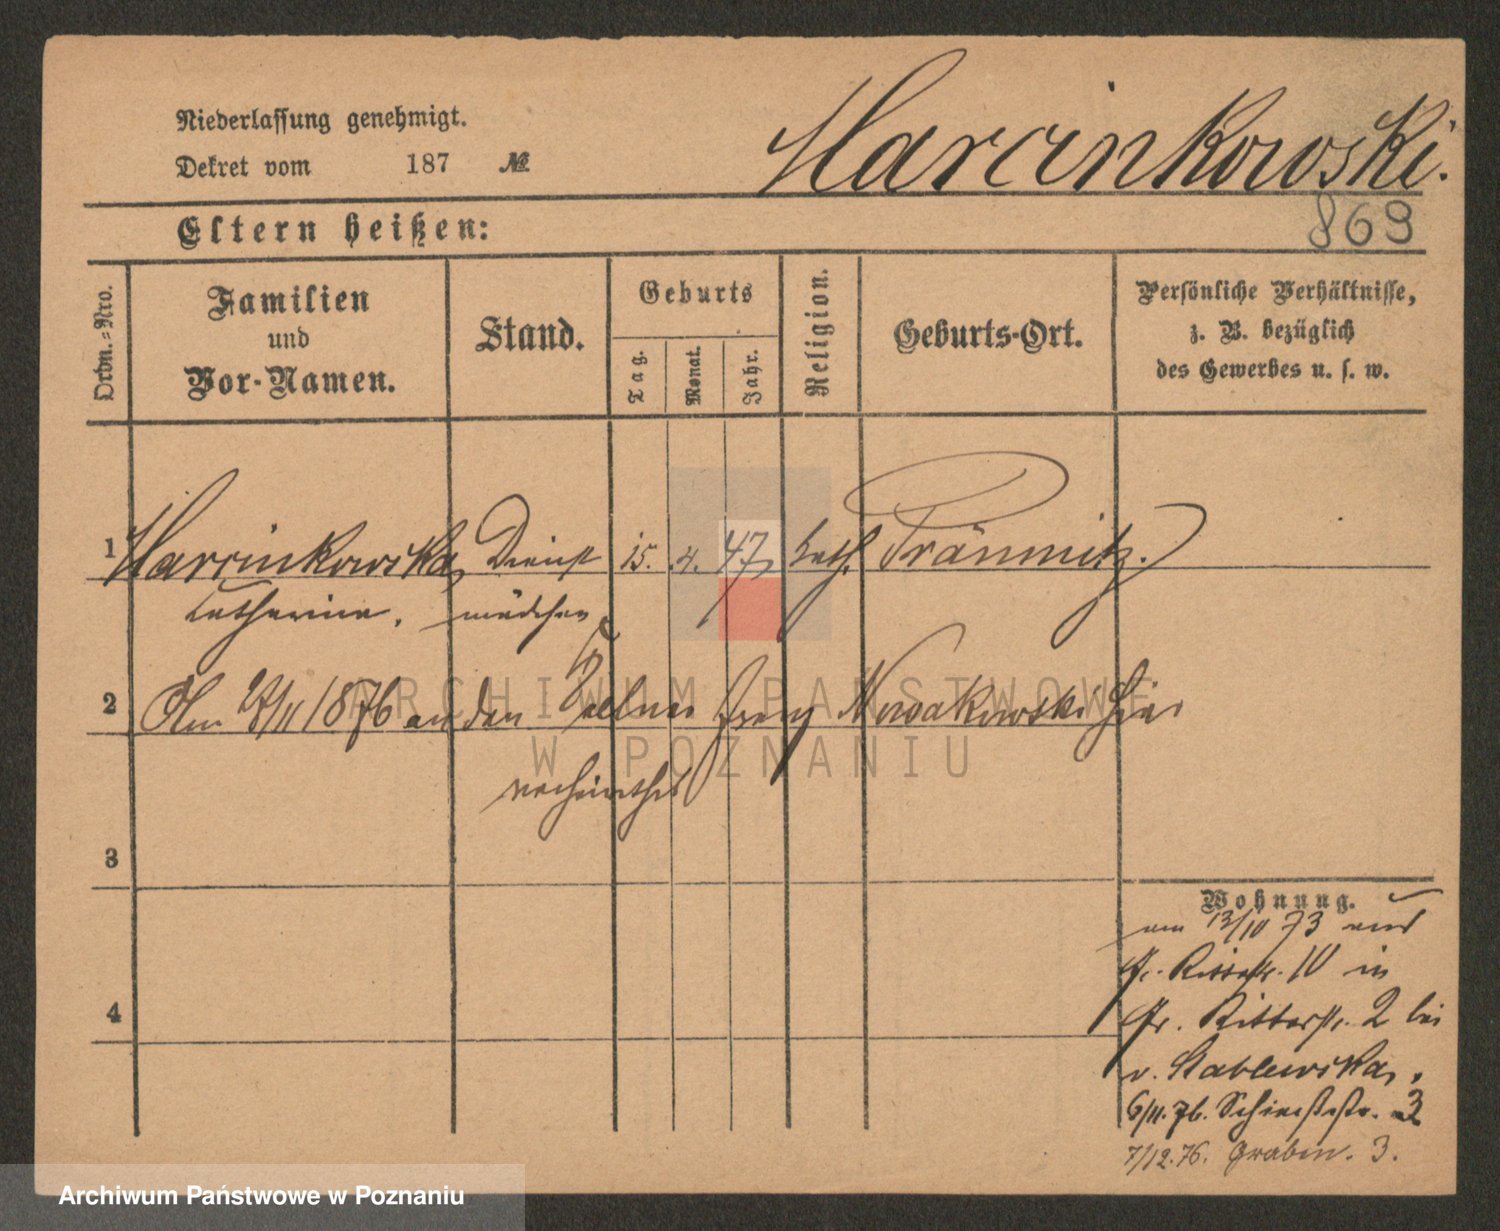 Niederlassung genehmigt.
Dekret vom 187 №
Marcinkowski.
869
Eltern heißen:
Ordn.=Nro.
Familien
und
Vor-Namen.
Stand.
Geburts
Tag.
Monat.
Jahr.
Religion.
Geburts-Ort.
Persönliche Verhältnisse,
z. B. bezüglich
des Gewerbes u. s. w.
1 Marcinkowska, Dienst 15. 4. 47, kath. Prämnitz.
Catharina, mädchen
2 Am /11 1876 an den Kellner Franz Nowakowski hier
verheirathet
3
4
Wohnung.
am 13/10 73 aus
Gr. Ritterstr. 10 in
Gr. Ritterstr. 2 bei
v. Stablewska,
6/11. 76. Schiessstr. 3
7/12. 76. Graben. 3.
ARCHIWUM PAŃSTWOWE
W POZNANIU
Archiwum Państwowe w Poznaniu